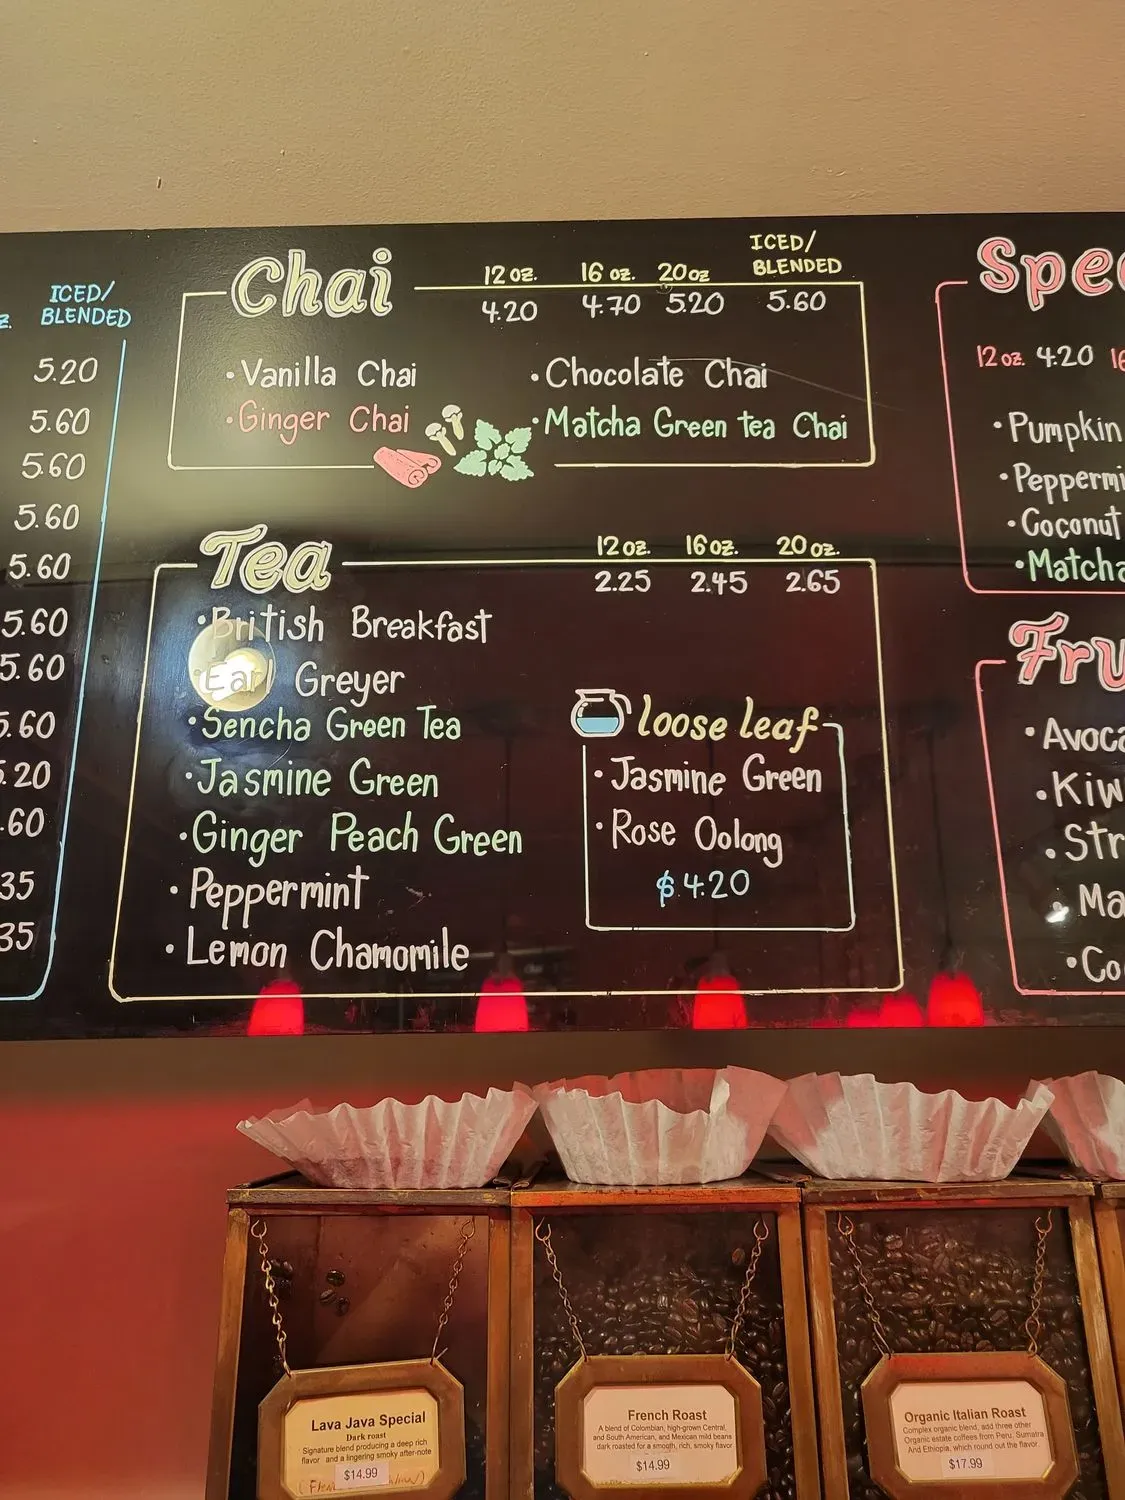 ICED/
BLENDED
5.20
5.60
5.60
5.60
5.60
5.60
5.60
5.60
5.20
.60
35
35
Chai
12 oz. 16 oz. 20 oz ICED/
BLENDED
4.20 4.70 5.20 5.60
• Vanilla Chai
• Ginger Chai
• Chocolate Chai
• Matcha Green tea Chai
Tea
12 oz. 16 oz. 20 oz.
2.25 2.45 2.65
• British Breakfast
• Earl Greyer
• Sencha Green Tea
• Jasmine Green
• Ginger Peach Green
• Peppermint
• Lemon Chamomile
loose leaf
• Jasmine Green
• Rose Oolong
$4.20
12 oz. 4.20
• Pumpkin
• Coconut
• Matcha
Lava Java Special
Dark roast
Signature blend producing a deep rich
flavor and a lingering smoky after-note
$14.99
French Roast
A blend of Colombian, high-grown Central,
and South American, and Mexican mild beans
dark roasted for a smooth, rich, smoky flavor
$14.99
Organic Italian Roast
Complex organic blend, add three other
Organic estate coffees from Peru, Sumatra
And Ethiopia, which round out the flavor.
$17.99